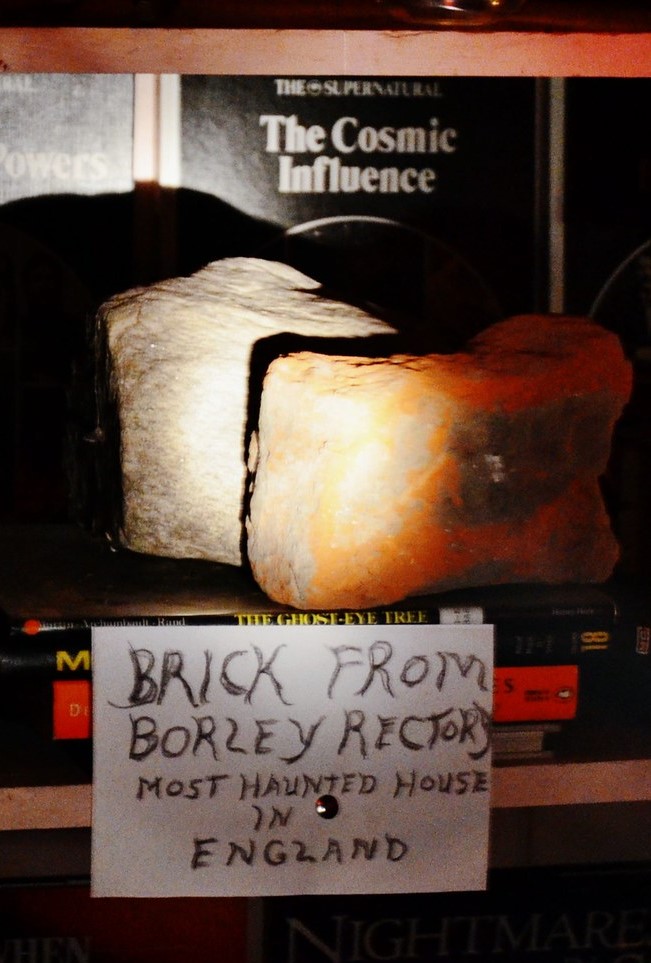 THE SUPERNATURAL
The Cosmic
Influence
Powers
THE GHOST-EYE TREE
18
M
BRICK FROM
BORLEY RECTORY
MOST HAUNTED HOUSE
IN
ENGLAND
WHEN
NIGHTMARE